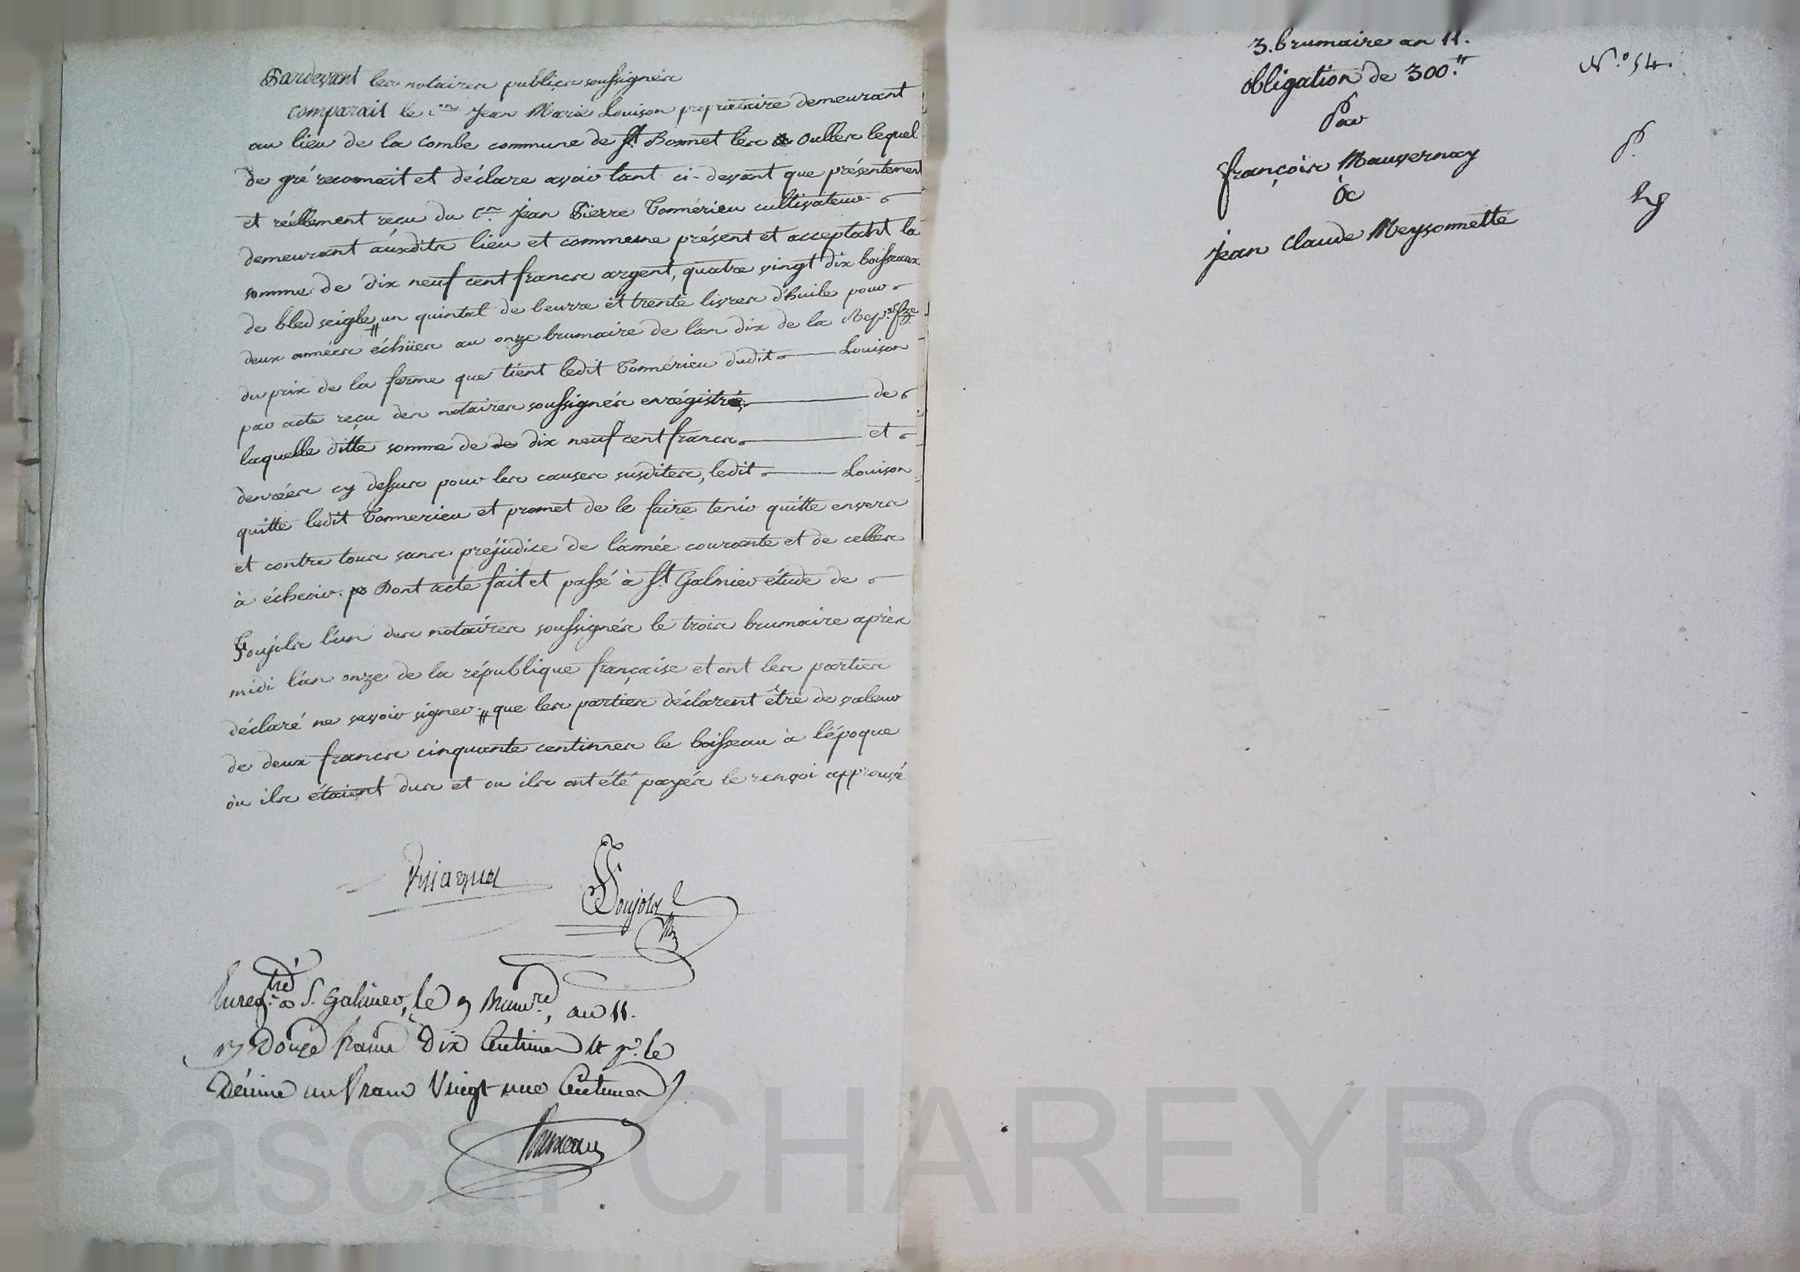 Pardevant les notaires publics soussignés
comparait le c.en Jean Marie Louison propriétaire demeurant
au lieu de la Combe commune de St Bonnet les Oulles lequel
de gré reconnait et déclare avoir tant ci-devant que présentement
et réellement reçu du c.en Jean Pierre Tonnérieu cultivateur
demeurant auxdits lieu et commune présent et acceptant la
somme de dix neuf cent francs argent, quatre vingt dix boisseaux
de bled seigle, " un quintal de beurre et trente livres d'huile pour
deux années échües au onze brumaire de l'an dix de la Rep.e fse
du prix de la ferme que tient ledit Tonnérieu dudit Louison
par acte reçu des notaires soussignés enrégistré, de
laquelle ditte somme de de dix neuf cent francs et
denrées cy dessus pour les causes susdites, ledit Louison
quitte ledit Tonnerieu et promet de le faire tenir quitte envers
et contre tous sans préjudice de l'année courante et de celles
à échoir. Dont acte fait et passé à St Galmier étude de
Poujols l'un des notaires soussignés le trois brumaire après
midi l'an onze de la république française et ont les parties
déclaré ne savoir signer. " que les parties déclarent être de valeur
de deux francs cinquante centimes le boisseau à l'époque
où ils étaient dus et ou ils ont été payés le renvoi approuvé
Poujols
Enreg.tré a S. Galmier, le 9 Brum.re, an 11.
R/ Douze francs Dix Centimes et pr. le
Décime un franc Vingt une Centimes
3. brumaire an 11.
N.o 54.
obligation de 300.tt
Par
françois Mauvernay
P.
à
Jean Claude Meysonnette
Pascal CHAREYRON